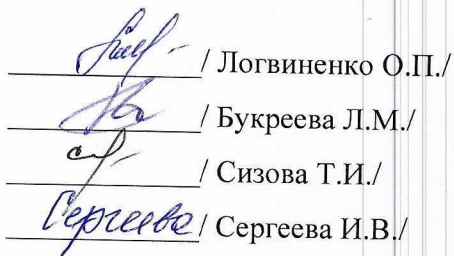 / Логвиненко О.П./
/ Букреева Л.М./
/ Сизова Т.И./
Сергеева / Сергеева И.В./